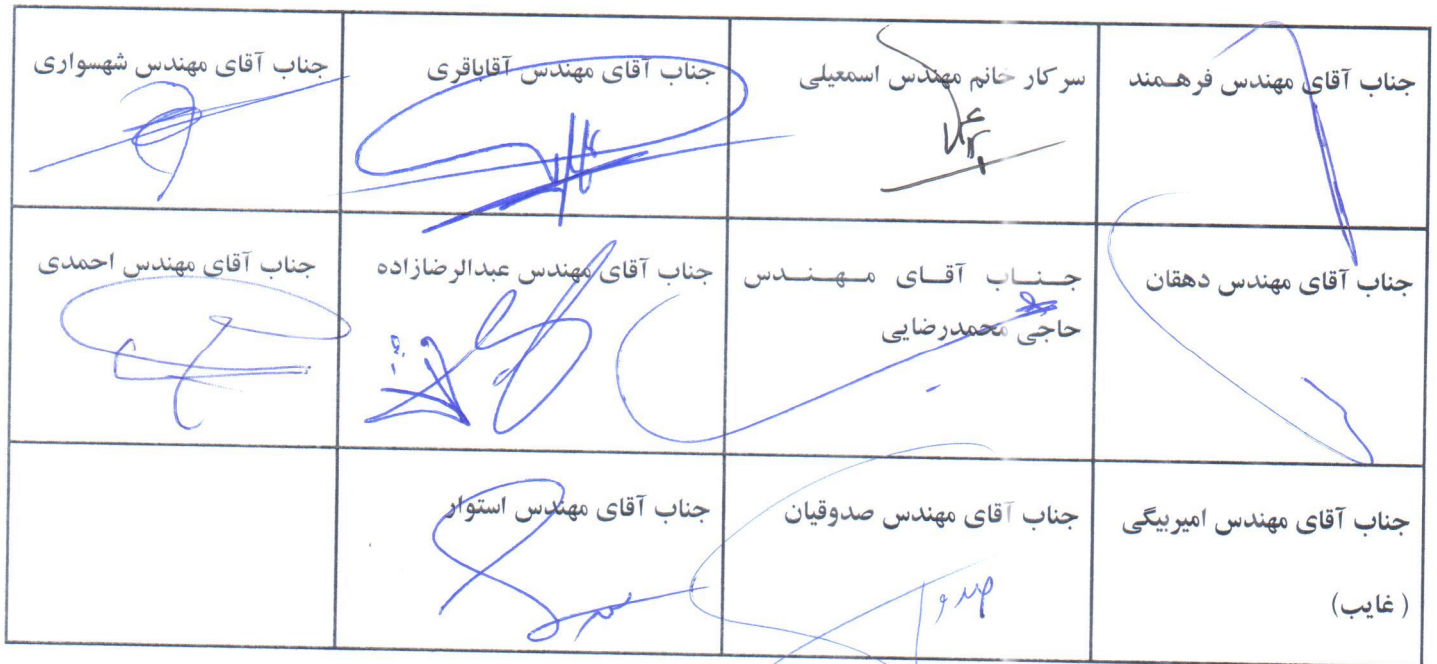 جناب آقای مهندس فرهـمند
سرکار خانم مهندس اسمعیلی
جناب آقای مهندس آقاباقری
جناب آقای مهندس شهسواری
جناب آقای مهندس دهقان
جـنــاب آقــای مـهـنــدس
حاجی محمدرضایی
جناب آقای مهندس عبدالرضازاده
جناب آقای مهندس احمدی
جناب آقای مهندس امیربیگی
(غایب)
جناب آقای مهندس صدوقیان
جناب آقای مهندس استوار